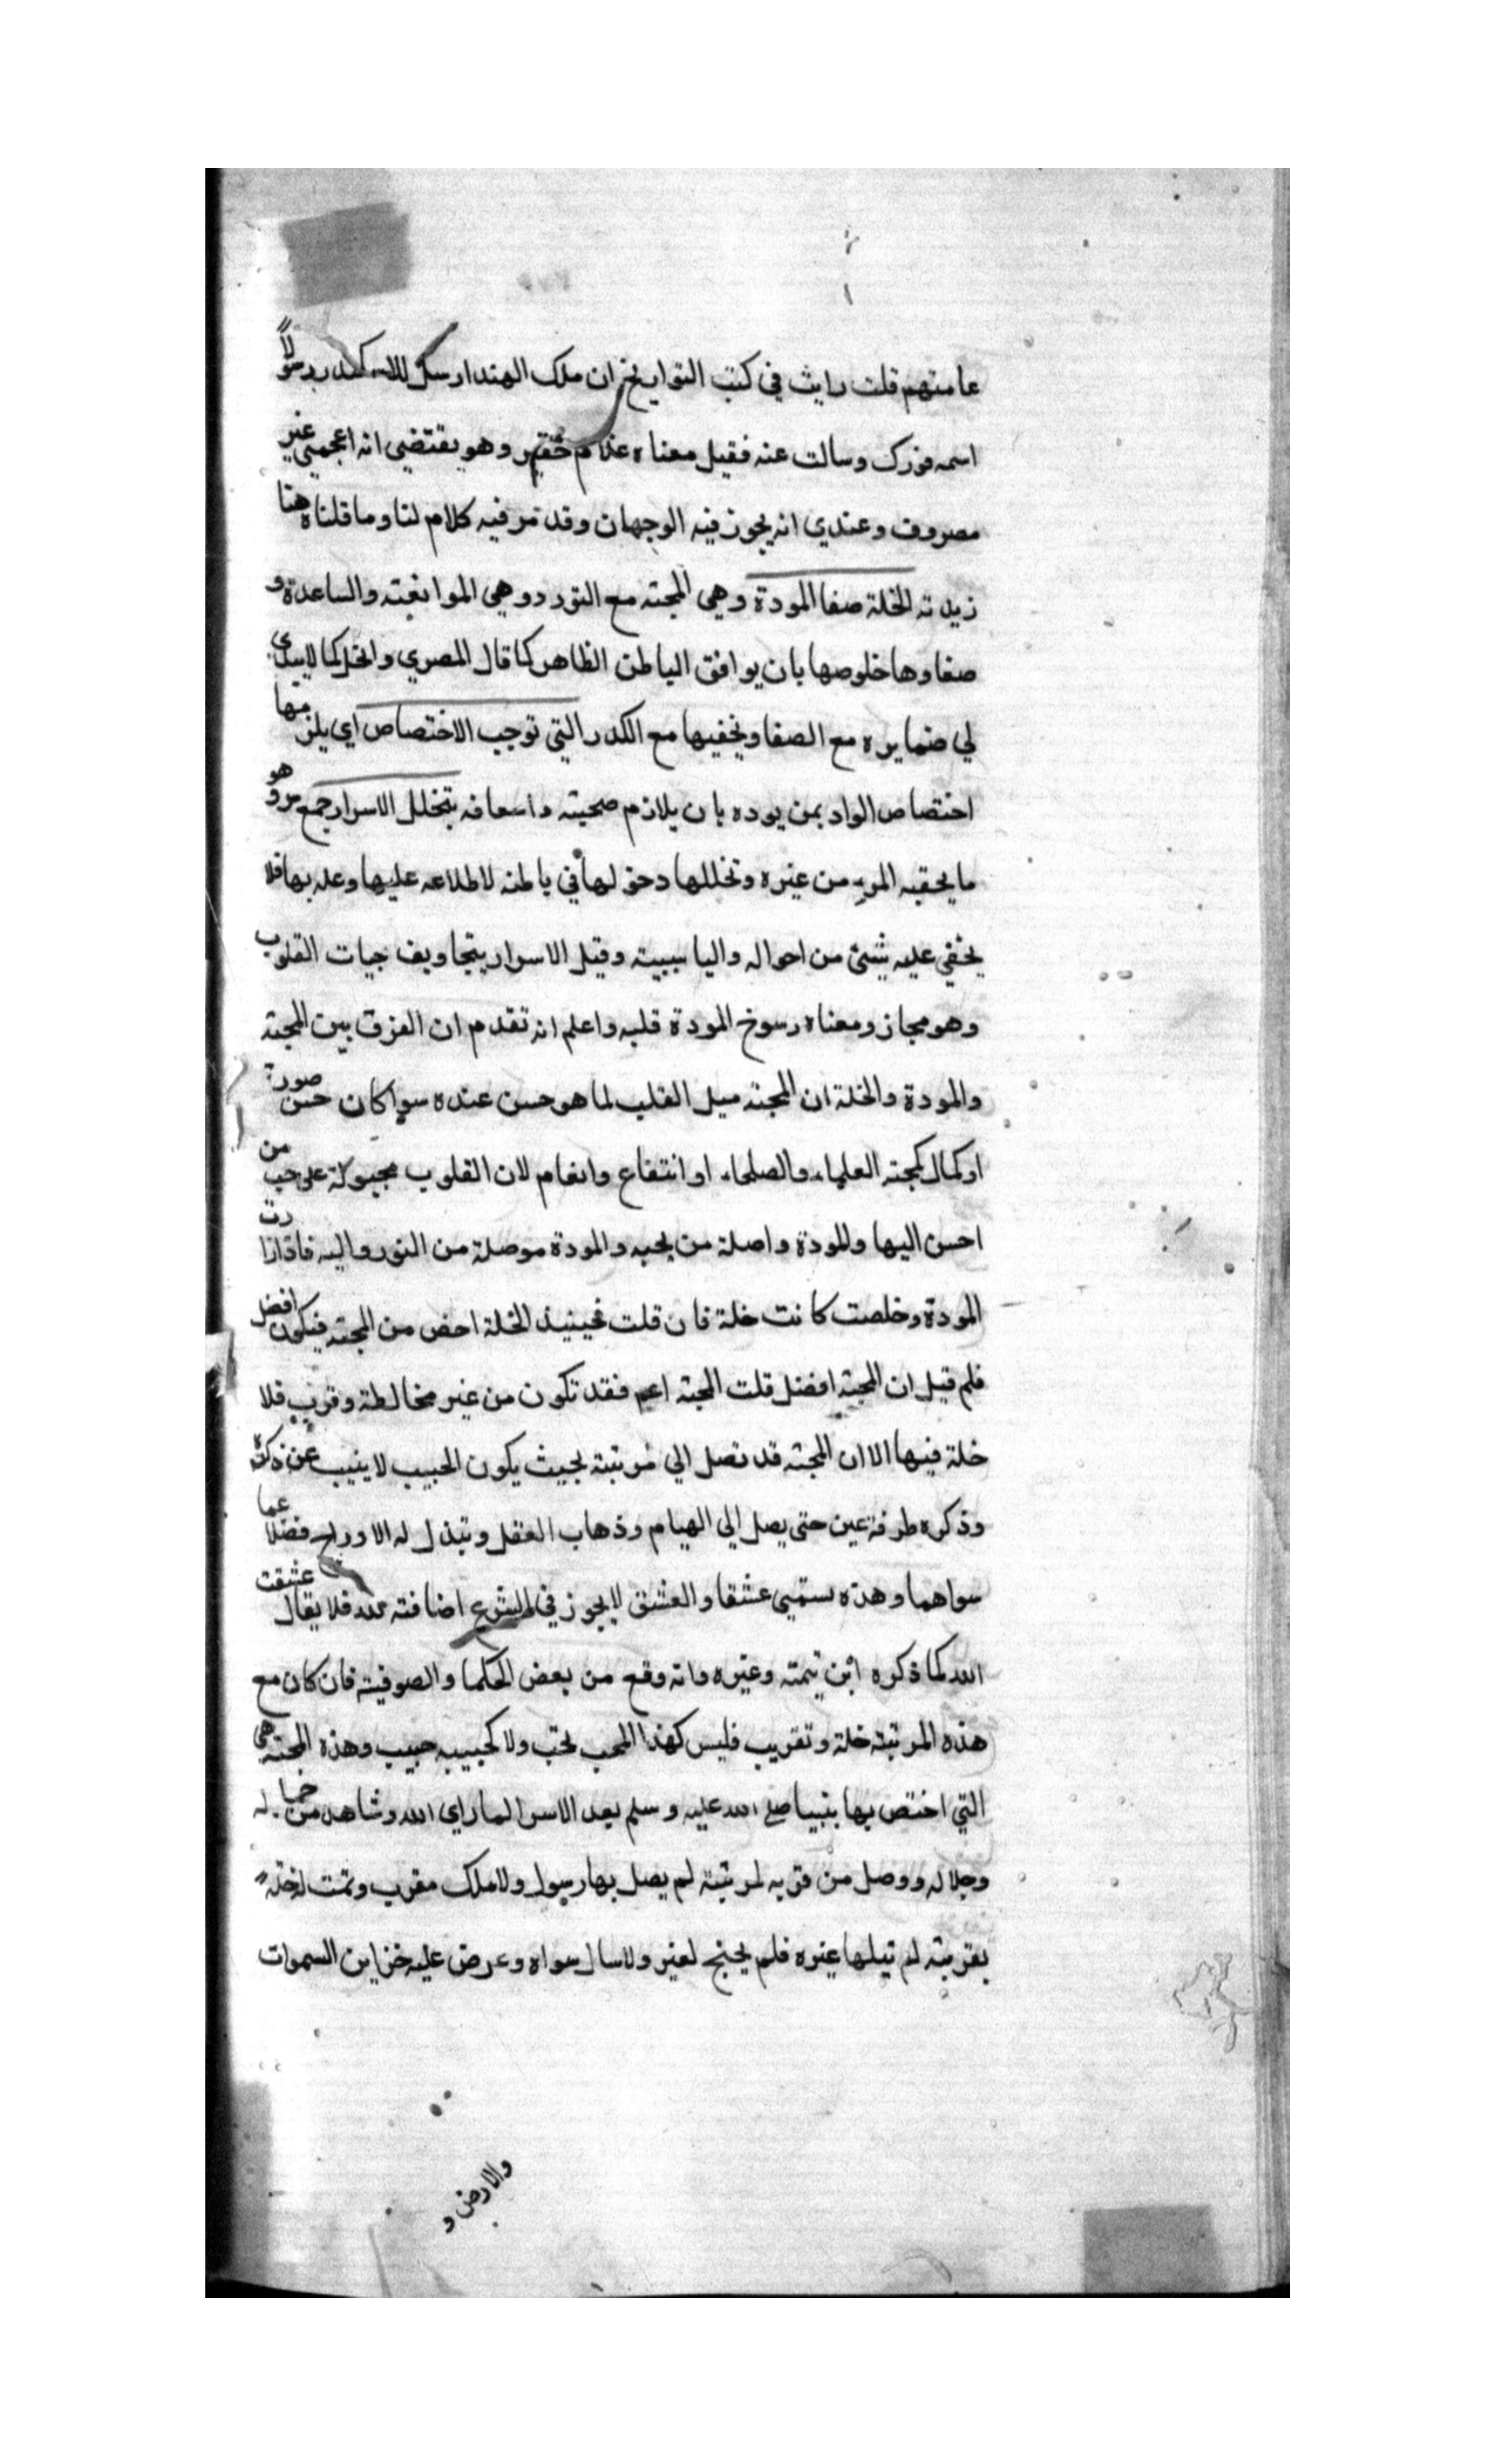 عامتهم قلت رايت في كتب التواريخ ان ملك الهند ارسل للاسكندر رسولاً
اسمه فورك وسالت عنه فقيل معناه غلام حقير وهو يقتضي انه اعجمي غير
مصروف وعندي انه يجوز فيه الوجهان وقد مر فيه كلام لنا وما قلناه هنا
زبدته الخلة صفا المودة وهي المحبة مع التودد وهي الموافقة والساعدة و
صفاوها خلوصها بان يوافق الباطن الظاهر كما قال المصري والخل كما لا يبدي
لي ضمايره مع الصفا ويخفيها مع الكدر التي توجب الاختصاص اي يلزمها
اختصاص الواد بمن يوده بان يلازم صحبته واسعافه بتخلل الاسرار جمع سر وهو
ما يخفيه المرء من غيره وتخللها دخولها في باطنه لاطلاعه عليها وعلمه بها فلا
يخفي عليه شئ من احواله واليا سببية وقيل الاسرار بتجاويف حبات القلوب
وهو مجاز ومعناه رسوخ المودة قلبه واعلم انه تقدم ان الفرق بين المحبة
والمودة والخلة ان المحبة ميل القلب لما هو حسن عنده سوا كان حسن صورة
او كمال كمحبة العلماء والصلحاء او انتفاع وانعام لان القلوب مجبولة على حب من
احسن اليها والمودة واصلة من يحبه والمودة موصلة من التودد اليه فاذا زادت
المودة وخلصت كانت خلة فان قلت فحينيذ الخلة اخص من المحبة فيكون افضل
فلم قيل ان المحبة افضل قلت المحبة اعم فقد تكون من غير مخالطة وقرب فلا
خلة فيها الا ان المحبة قد تصل الي مرتبة بحيث يكون الحبيب لا يغيب عن فكره
وذكره طرفة عين حتى يصل الي الهيام وذهاب العقل وتبذل له الاورلح فضلا عما
سواهما وهذه يسمي عشقا والعشق لا يجوز في الشرع اضافته لله فلا يقال عشقت
الله كما ذكره ابن تيمته وغيره وانه وقع من بعض الحكما والصوفية فان كان مع
هذه المرتبة خلة وتقريب فليس كهذا المحب محب ولا كحبيبه حبيب وهذه المحبة هي
التي اختص بها بنبيا صلى الله عليه وسلم بعد الاسرا لما راي الله وشاهد من جماله
وجلاله ووصل من قربه لمرتبة لم يصل بها رسول ولا ملك مقرب وتمت له خلة
بقربة لم نيلها غيره فلم يحتج لغير ولا سال سواه وعرض عليه خزاين السموات
والارض و